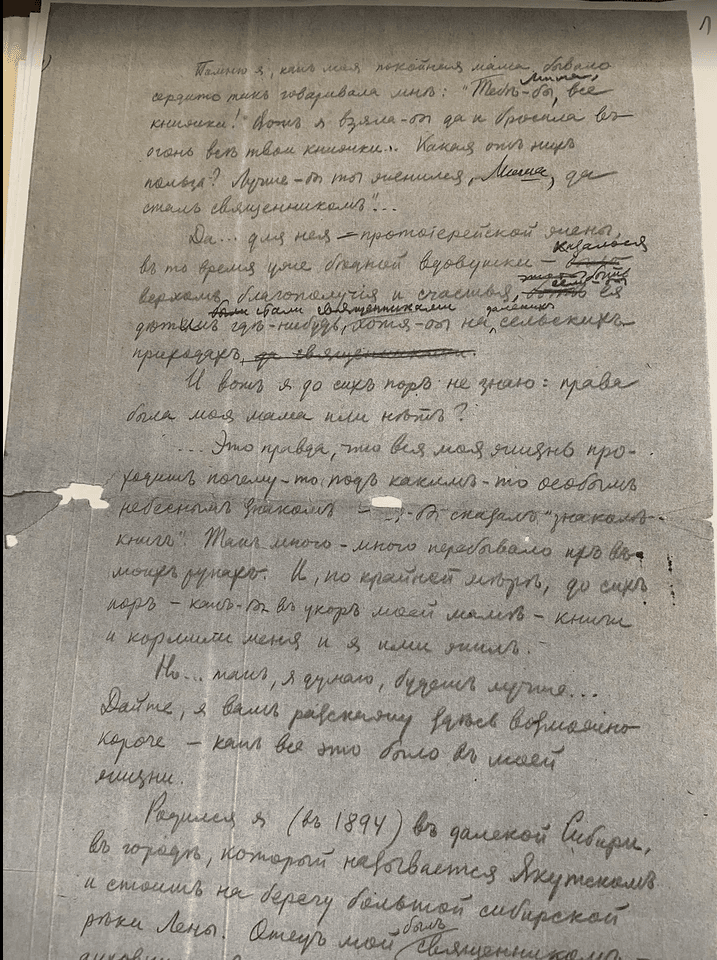 Помню я, какъ моя покойная мама бывало
сердито такъ говаривала мнѣ: "Тебѣ-бы, Миша, все
книжки! Вотъ я взяла-бы да и бросила въ
огонь всѣ твои книжки... Какая отъ нихъ
польза? Лучше-бы ты женился, Миша, да
сталъ священникомъ"...
Да... для нея – протоіерейской жены,
въ то время уже бѣдной вдовушки – казалось
верхомъ благополучія и счастья, если-бы ея
дѣти были стали священниками
гдѣ-нибудь, хотя-бы на далекихъ сельскихъ
приходахъ, да священниками.
И вотъ я до сихъ поръ не знаю: права
была моя мама или нѣтъ?
... Это правда, что вся моя жизнь про-
ходитъ почему-то подъ какимъ-то особымъ
небеснымъ знакомъ – я-бы сказалъ "знакомъ
книгъ". Такъ много-много перебывало ихъ въ
моихъ рукахъ. И, по крайней мѣрѣ, до сихъ
поръ – какъ-бы въ укоръ моей мамѣ – книги
и кормили меня и я ими жилъ.
Но... такъ, я думаю, будетъ лучше...
Дайте, я вамъ разскажу здѣсь возможно
короче – какъ все это было въ моей
жизни.
Родился я (въ 1894) въ далекой Сибири,
въ городѣ, который называется Якутскомъ
и стоитъ на берегу большой сибирской
рѣки Лены. Отецъ мой былъ священникомъ –